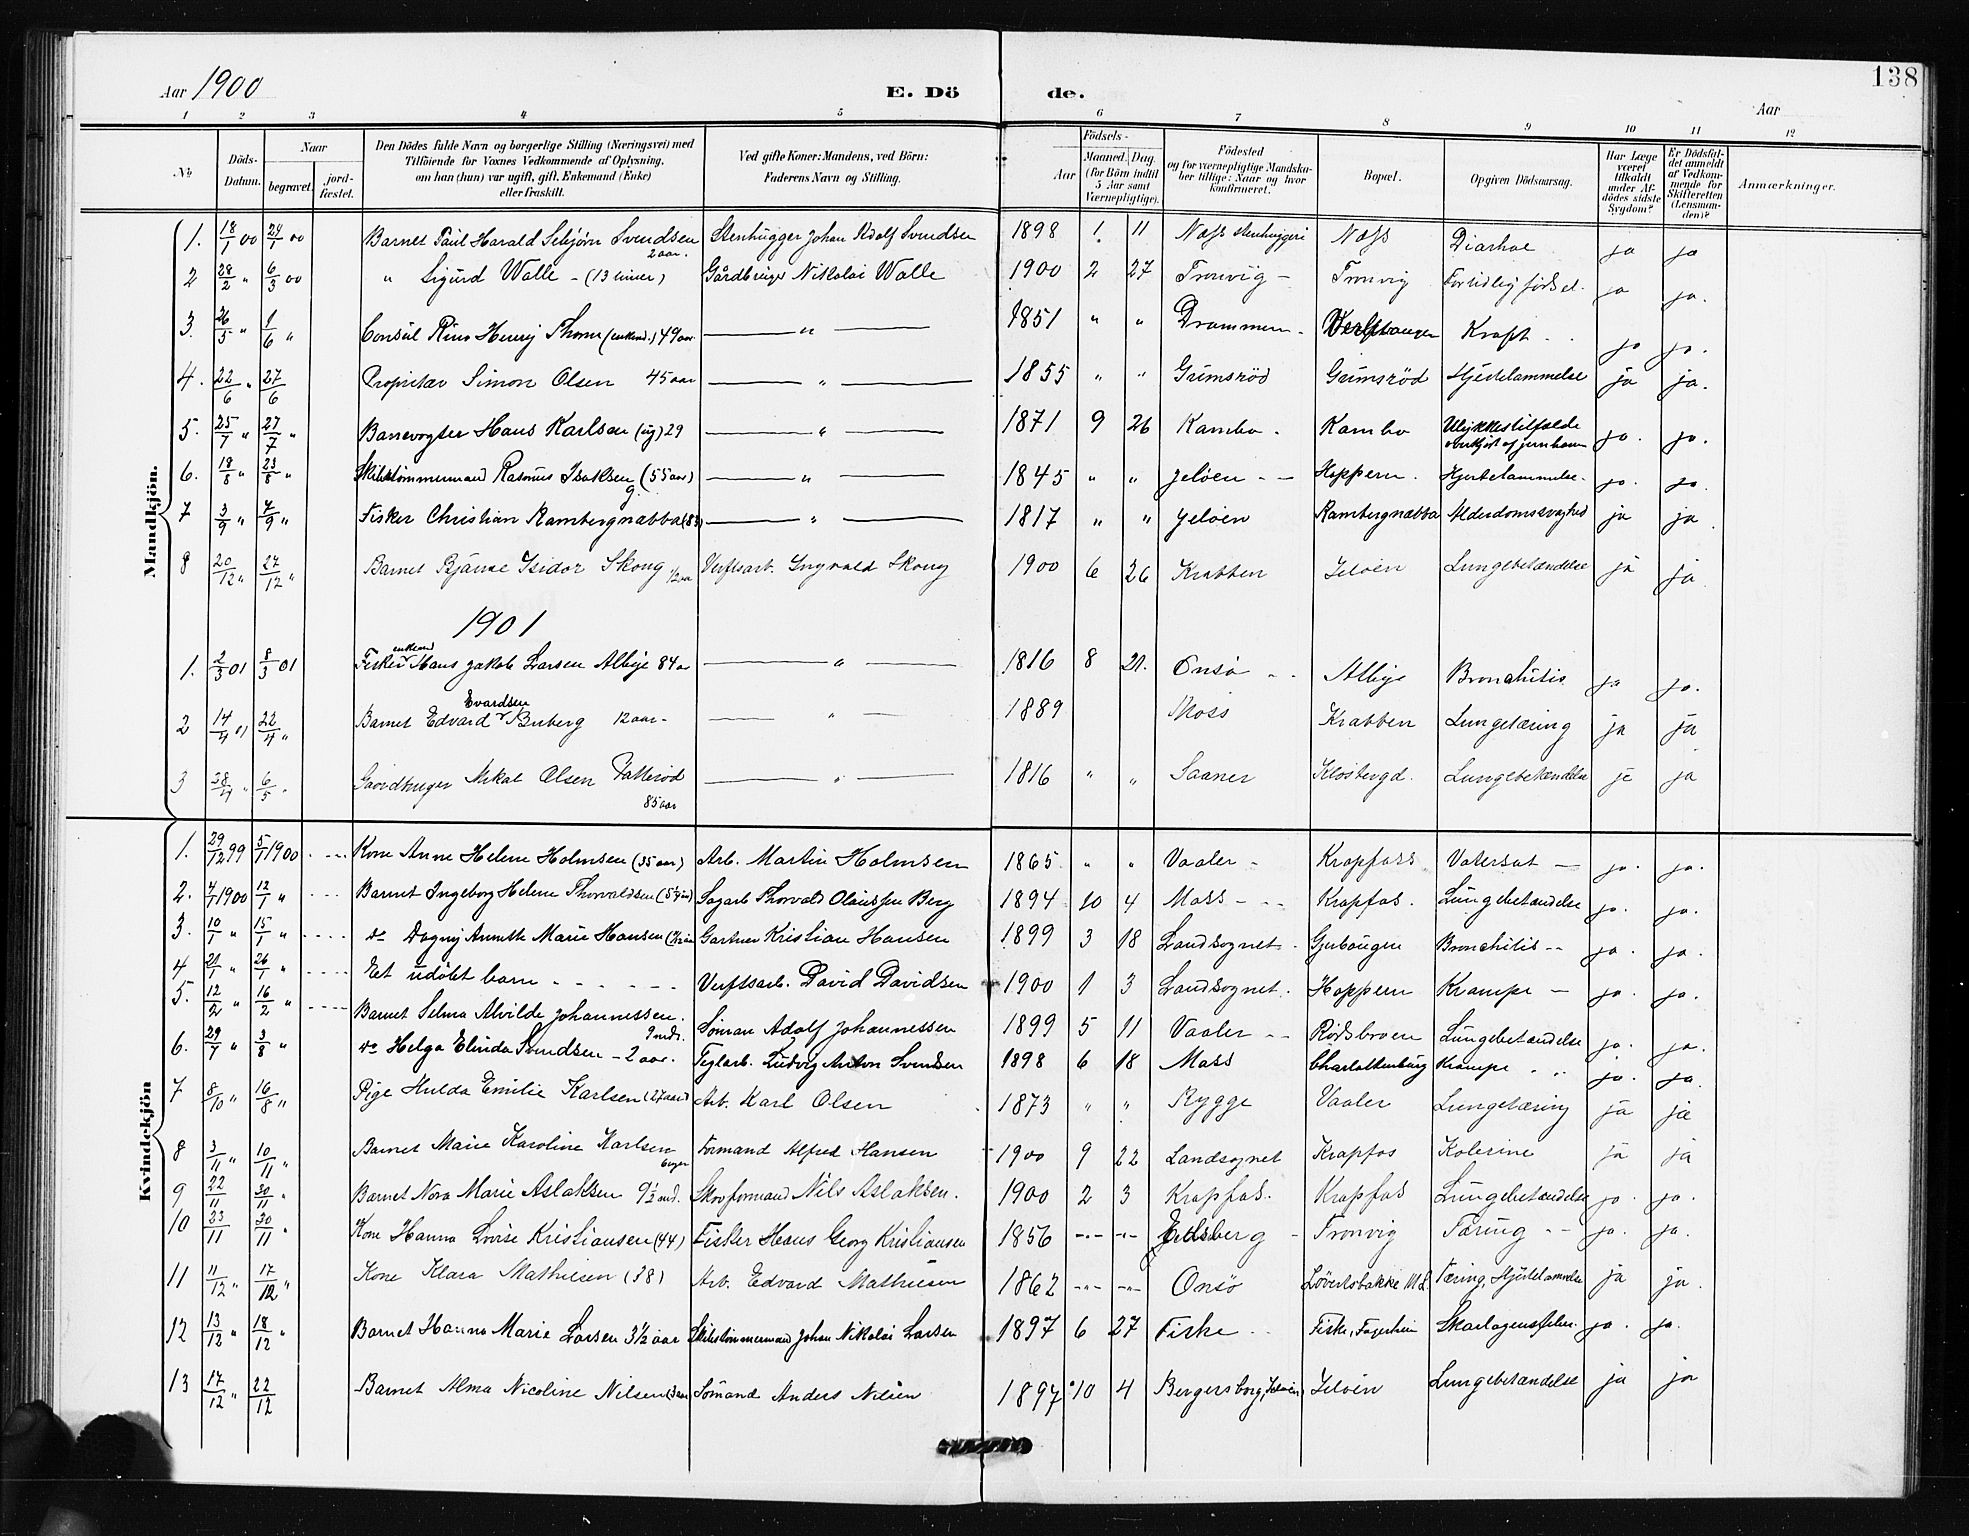 138
Aar 1900 E. Dö de. Aar
1 2 3 4 5 6 7 8 9 10 11 12
No. Döds-Datum. Naar begravet. jord-fæstet. Den Dödes fulde Navn og borgerlige Stilling (Næringsvei) med Tilföiende for Voxnes Vedkommende af Oplysning, om han (hun) var ugift, gift, Enkemand (Enke) eller fraskilt. Ved gifte Koner: Mandens, ved Börn: Faderens Navn og Stilling. Födsels- Aar Maaned. Dag. (for Börn indtil 5 Aar samt Værnepligtige). Födested og for værnepligtige Mandska-ber tillige: Naar og hvor konfirmeret. Bopæl. Opgiven Dödsaarsag. Har Læge været tilkaldt under Af-dödes sidste Sygdom? Er Dödsfal-det anmeldt af Vedkom-mende for Skifteretten (Lensman-den)? Anmærkninger.
Mandkjön.
1. 18/1 00 24/1 00 Barnet Paul Harald Schjörn Svendsen 2 aar. Stenhugger Johan Adolf Svendsen 1898 1. 11 Næss Stenhuggeri Næss Diarhoe ja ja
2 28/2 " 6/3 00 " Sigurd Walle - (13 timer) Gårdbruger Nikolai Walle 1900 2 27 Tronvig - Tronvig For tidlig födsel. ja ja.
3. 26/5 " 1/6 " Consul Rino Henrij Thorne (enkem.) 49 aar " 1851 " " Drammen - Kræft ja ja.
4. 22/6 " 27/6 Propritær Simon Olsen 45 aar " 1855 " " Grimsröd Grimsröd Hjertelammelse ja ja.
5. 25/7 " 27/7 " Banevogter Hans Karlsen (ug) 29 " 1871 9 26 Kambo - Kambo Ulykkestilfælde overkjört af jernbanen ja. ja.
6. 18/8 " 23/8 " Skibstömmermand Rasmus Isaksen g (55 aar) " 1845 " " Jelöen - - Hoppern. Hjertelammelse. ja. ja.
7 3/9 " 7/9 " Fisker Christian Rambergnabba (83) " 1817 " " Jelöen Rambergnabba Alderdomssvaghed ja ja
8 20/12 " 27/12 " Barnet Bjarne Isidor Skoug 1/2 aar Verftsarb. Yngvald Skoug 1900 6 26 Krabben Jelöen Lungebetændelse ja ja
1901
1. 2/3 01 8/3 01 Fisker enkem Hans Jakob Larsen Alby 84 aar " 1816 8 21. Onsö - - Alby Bronchitis ja ja.
2 14/4 01 22/4 " Barnet Edvard Evardsen Buberg 12 aar - " 1889 Moss Krabben Lungetæring ja ja
3 28/4 " 6/5 " Gaardbruger Mikal Olsen Patteröd 85 aar " 1816 " " Saaner Klosbergd. Lungebetændelse ja ja
Kvindekjön
1. 29/12 99 5/1 1900 Kone Anne Helene Holmsen (35 aar) Arb. Martin Holmsen 1865 " " Vaaler - Krapfoss Vatersot - ja. ja.
2. 7/1 1900 12/1 " Barnet Ingeborg Helene Thorvaldsen Sagarb Thorvald Olaussen Berg 1894 10 4 Moss - - - Krapfos. Lungebetændelse ja. ja.
3. 10/1 " 15/1 " do Dagny Annette Marie Hansen Gartner Kristian Hansen 1899 3 18 Landsognet - Bronchitis - - ja. ja.
4 21/1 " 26/1 " Et udöbt barn - - - - - - Verftsarb. David Davidsen 1900 1 3 Landsognet. Hoppern Krampe - ja. ja.
5. 12/2 " 16/2 " Barnet Selma Alvilde Johannessen. 9 mdr. Sömand Adolf Johannessen 1899 5 11 Vaaler - - Rödsbroen Lungebetændelse ja. ja.
6. 29/7 " 3/8 " do Helga Elinda Svendsen - 2 aar. Teglarb. Ludvig Anton Svendsen 1898 6 18 Moss Charlottenburg Krampe " " ja. ja.
7 8/10 " 16/8 " Pige Hulda Emilie Karlsen (27 aar) Arb. Karl Olsen 1873 " " Rygge Vaaler Lungetæring ja ja
8 3/11 " 10/11 " Barnet Marie Karoline Karlsen 6 uger Formand Alfred Hansen 1900 9 22 Landsognet Krapfos Kolerine ja ja
9 22/11 30/11 " Barnet Nora Marie Aslaksen 9 1/2 md. Skovformand Nils Aslaksen. 1900 2 3 Krapfos. Krapfos Lungebetændelse ja. ja.
10 23/11 30/11 " Kone Hanna Lovise Kristiansen (44) Fisker Hans Georg Kristiansen 1856 -"- -"- Eidsberg - Tronvig Tæring - - ja. ja.
11 11/12 " 17/12 " Kone Klara Mathiesen (38) Arb. Edvard Mathiesen 1862 -"- -"- Onsö Lövertsbakke M.L. Tæring, Hjertelammelse ja ja.
12 13/12 " 18/12 " Barnet Hanna Marie Larsen 3 1/2 aar Skibstömmermand Johan Nikolai Larsen 1897 6 27 Fiske - - Fiske, Fagerheim Skarlagensfeber. ja. ja.
13 17/12 " 22/12 Barnet Alma Nicoline Nilsen (3 aar) Sömand Anders Nilsen 1897 10 4 Bergersborg, Jelöen Jelöen Lungebetændelse ja ja